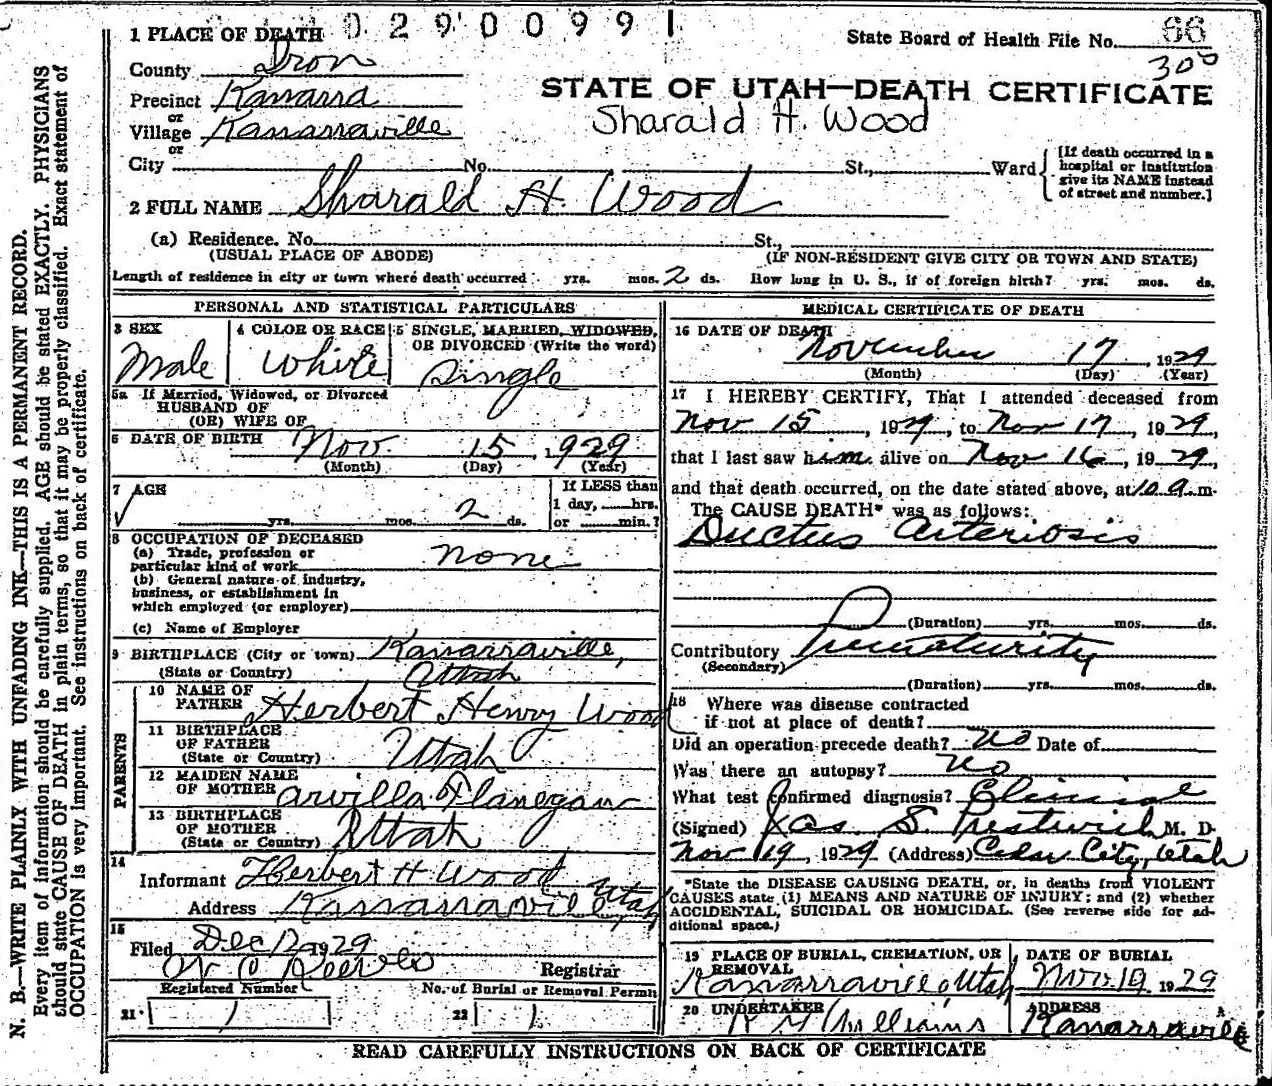 02900991
1 PLACE OF DEATH
State Board of Health File No. 66
300
County Iron
STATE OF UTAH—DEATH CERTIFICATE
Precinct Kanarra
or
Sharald H. Wood
Village Kanarraville
or
City No. St., Ward
[If death occurred in a hospital or institution give its NAME instead of street and number.]
2 FULL NAME Sharald H. Wood
(a) Residence. No. St.,
(USUAL PLACE OF ABODE) (IF NON-RESIDENT GIVE CITY OR TOWN AND STATE)
Length of residence in city or town where death occurred yrs. mos. 2 ds. How long in U. S., if of foreign birth? yrs. mos. ds.
PERSONAL AND STATISTICAL PARTICULARS
3 SEX
Male
4 COLOR OR RACE
White
5 SINGLE, MARRIED, WIDOWED,
OR DIVORCED (Write the word)
Single
5a If Married, Widowed, or Divorced
HUSBAND OF
(OR) WIFE OF
6 DATE OF BIRTH Nov. 15, 1929
(Month) (Day) (Year)
7 AGE
yrs. mos. 2 ds.
If LESS than
1 day, hrs.
or min.?
8 OCCUPATION OF DECEASED
(a) Trade, profession or
particular kind of work none
(b) General nature of industry,
business, or establishment in
which employed (or employer)
(c) Name of Employer
9 BIRTHPLACE (City or town) Kanarraville,
(State or Country) Utah
PARENTS
10 NAME OF
FATHER Herbert Henry Wood
11 BIRTHPLACE
OF FATHER
(State or Country) Utah
12 MAIDEN NAME
OF MOTHER Arvilla Flanegan
13 BIRTHPLACE
OF MOTHER
(State or Country) Utah
14
Informant Herbert H Wood
Address Kanarraville Utah
15
Filed Dec 12 1929
W C Reeves
Registrar
Registered Number No. of Burial or Removal Permit
21 1 22 1
MEDICAL CERTIFICATE OF DEATH
16 DATE OF DEATH
November 17, 1929
(Month) (Day) (Year)
17 I HEREBY CERTIFY, That I attended deceased from
Nov 15, 1929, to Nov 17, 1929,
that I last saw him alive on Nov 16, 1929,
and that death occurred, on the date stated above, at 10 a.m.
The CAUSE DEATH* was as follows:
Ductus Arteriosis
(Duration) yrs. mos. ds.
Contributory Prematurity
(Secondary)
(Duration) yrs. mos. ds.
18 Where was disease contracted
if not at place of death?
Did an operation precede death? No Date of
Was there an autopsy? No
What test confirmed diagnosis? Clinical
(Signed) Jas. S. Prestwich M. D.
Nov 19, 1929 (Address) Cedar City, Utah
*State the DISEASE CAUSING DEATH, or, in deaths from VIOLENT
CAUSES state (1) MEANS AND NATURE OF INJURY; and (2) whether
ACCIDENTAL, SUICIDAL OR HOMICIDAL. (See reverse side for ad-
ditional space.)
19 PLACE OF BURIAL, CREMATION, OR
REMOVAL
Kanarraville, Utah
DATE OF BURIAL
Nov. 19 1929
20 UNDERTAKER
Williams
ADDRESS
Kanarraville
READ CAREFULLY INSTRUCTIONS ON BACK OF CERTIFICATE
N. B.—WRITE PLAINLY WITH UNFADING INK—THIS IS A PERMANENT RECORD.
Every item of information should be carefully supplied. AGE should be stated EXACTLY. PHYSICIANS
should state CAUSE OF DEATH in plain terms, so that it may be properly classified. Exact statement of
OCCUPATION is very important. See instructions on back of certificate.